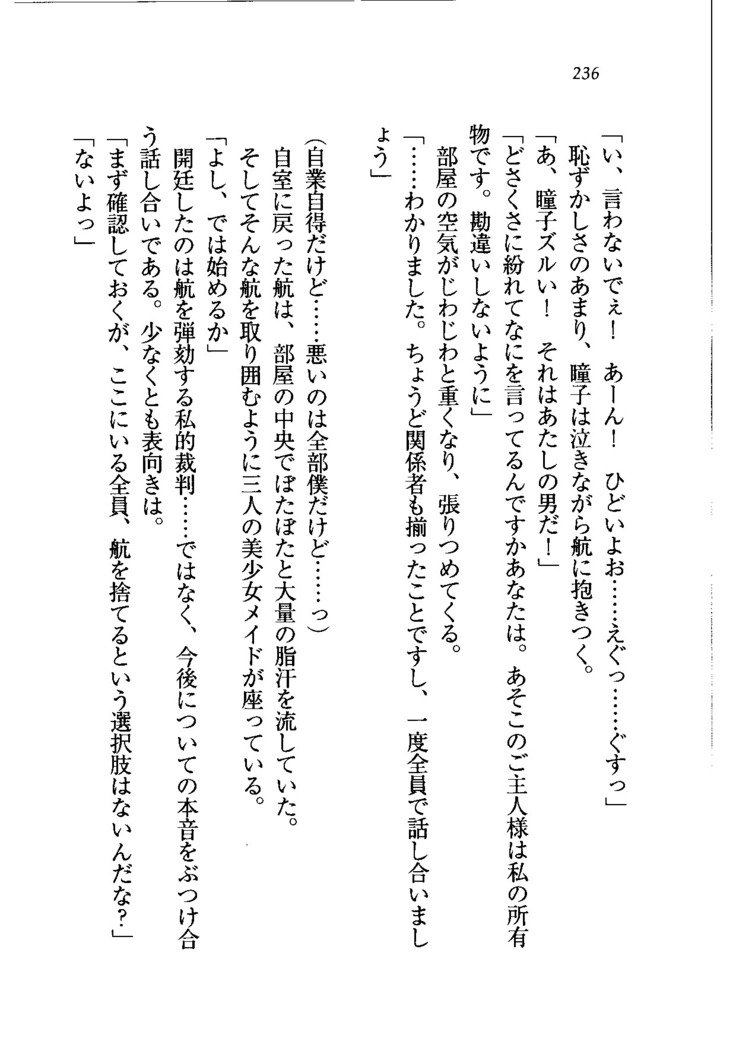 236
「い、言わないでぇ！　あーん！　ひどいよお……えぐっ……ぐすっ」
　恥ずかしさのあまり、瞳子は泣きながら航に抱きつく。
「あ、瞳子ズルい！　それはあたしの男だ！」
「どさくさに紛れてなにを言ってるんですかあなたは。あそこのご主人様は私の所有
物です。勘違いしないように」
　部屋の空気がじわじわと重くなり、張りつめてくる。
「……わかりました。ちょうど関係者も揃ったことですし、一度全員で話し合いまし
ょう」
（自業自得だけど……悪いのは全部僕だけど……っ）
　自室に戻った航は、部屋の中央でぼたぼたと大量の脂汗を流していた。
　そしてそんな航を取り囲むように三人の美少女メイドが座っている。
「よし、では始めるか」
　開廷したのは航を弾劾する私的裁判……ではなく、今後についての本音をぶつけ合
う話し合いである。少なくとも表向きは。
「まず確認しておくが、ここにいる全員、航を捨てるという選択肢はないんだな？」
「ないよっ」